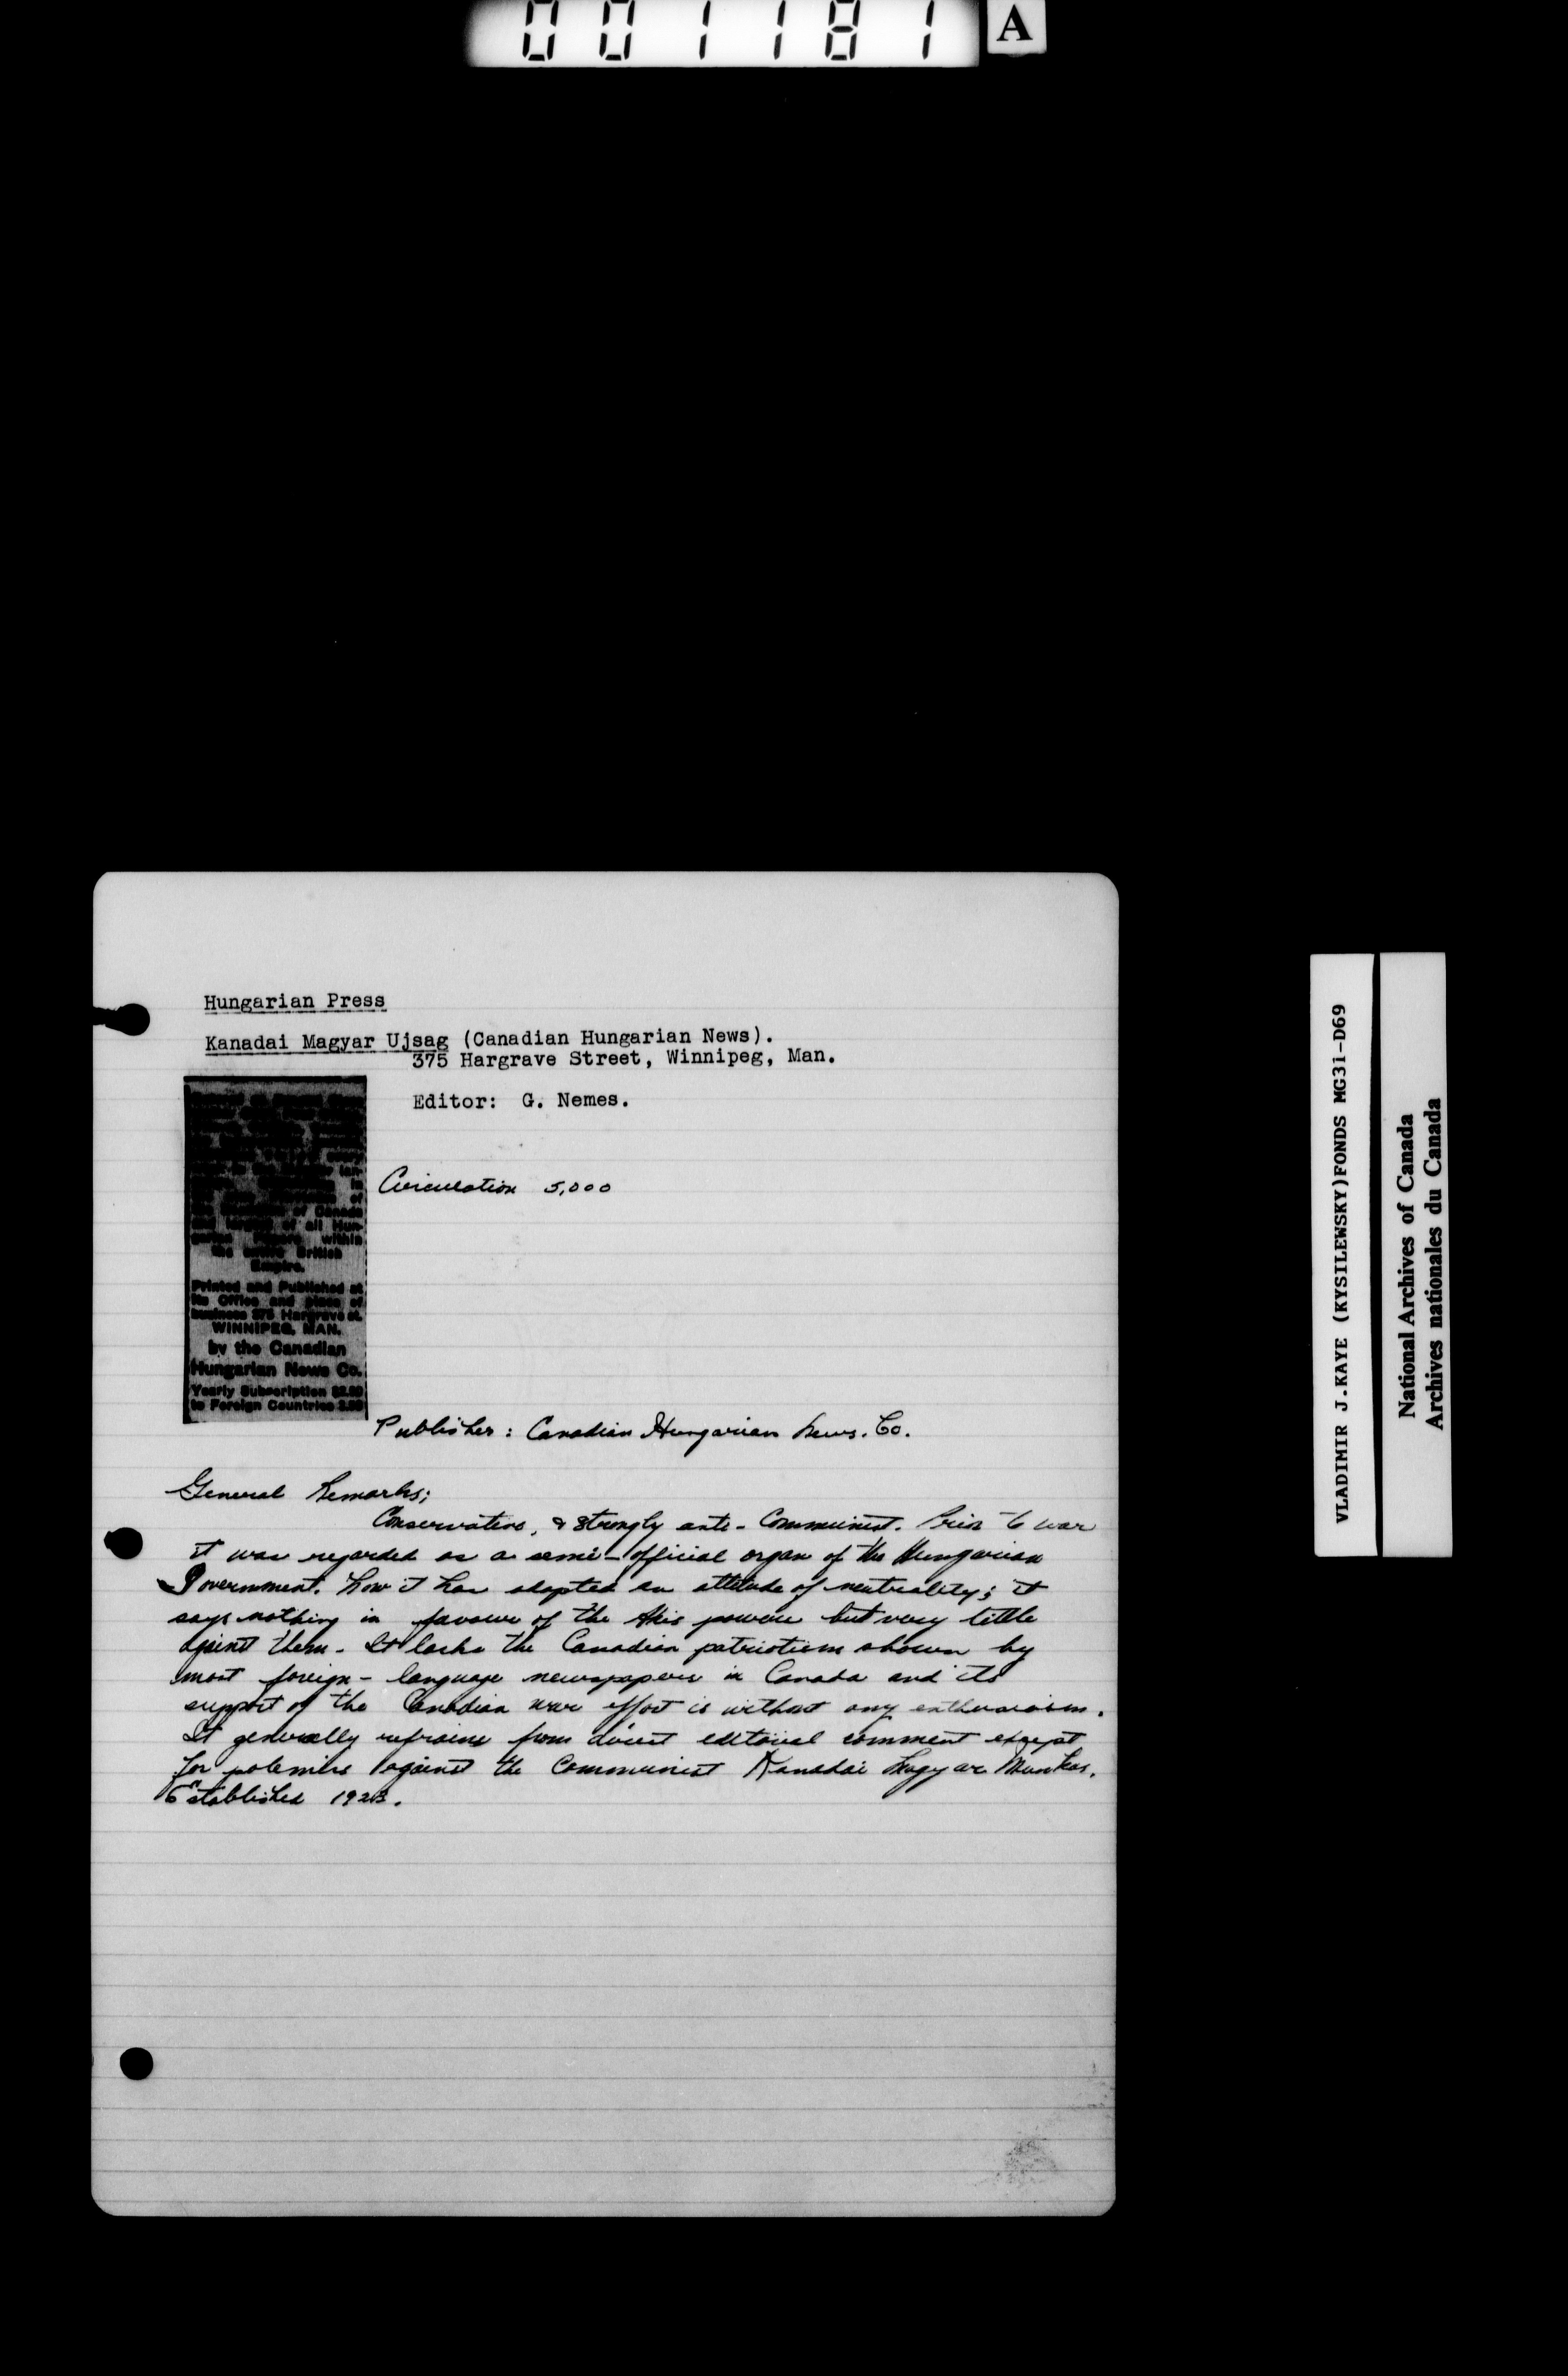 001181 A
Hungarian Press
Kanadai Magyar Ujsag (Canadian Hungarian News).
375 Hargrave Street, Winnipeg, Man.
Editor: G. Nemes.
Circulation 5,000
of Canada
of all Hun-
within
the British
Empire.
Printed and Published at
its Office and place of
business 375 Hargrave st.
WINNIPEG, MAN.
by the Canadian
Hungarian News Co.
Yearly Subscription $2.50
to Foreign Countries
Publisher: Canadian Hungarian News. Co.
General Remarks;
Conservative, & strongly anti-Communist. Prior to war
it was regarded as a semi-official organ of the Hungarian
Government. Now it has adopted an attitude of neutrality; it
says nothing in favour of the Axis powers but very little
against them. It lacks the Canadian patriotism shown by
most foreign-language newspapers in Canada and its
support of the Canadian war effort is without any enthusiasm.
It generally refrains from direct editorial comment except
for polemics against the Communist Kanadai Magyar Munkas.
Established
VLADIMIR J.KAYE (KYSILEWSKY)FONDS MG31-D69
National Archives of Canada
Archives nationales du Canada